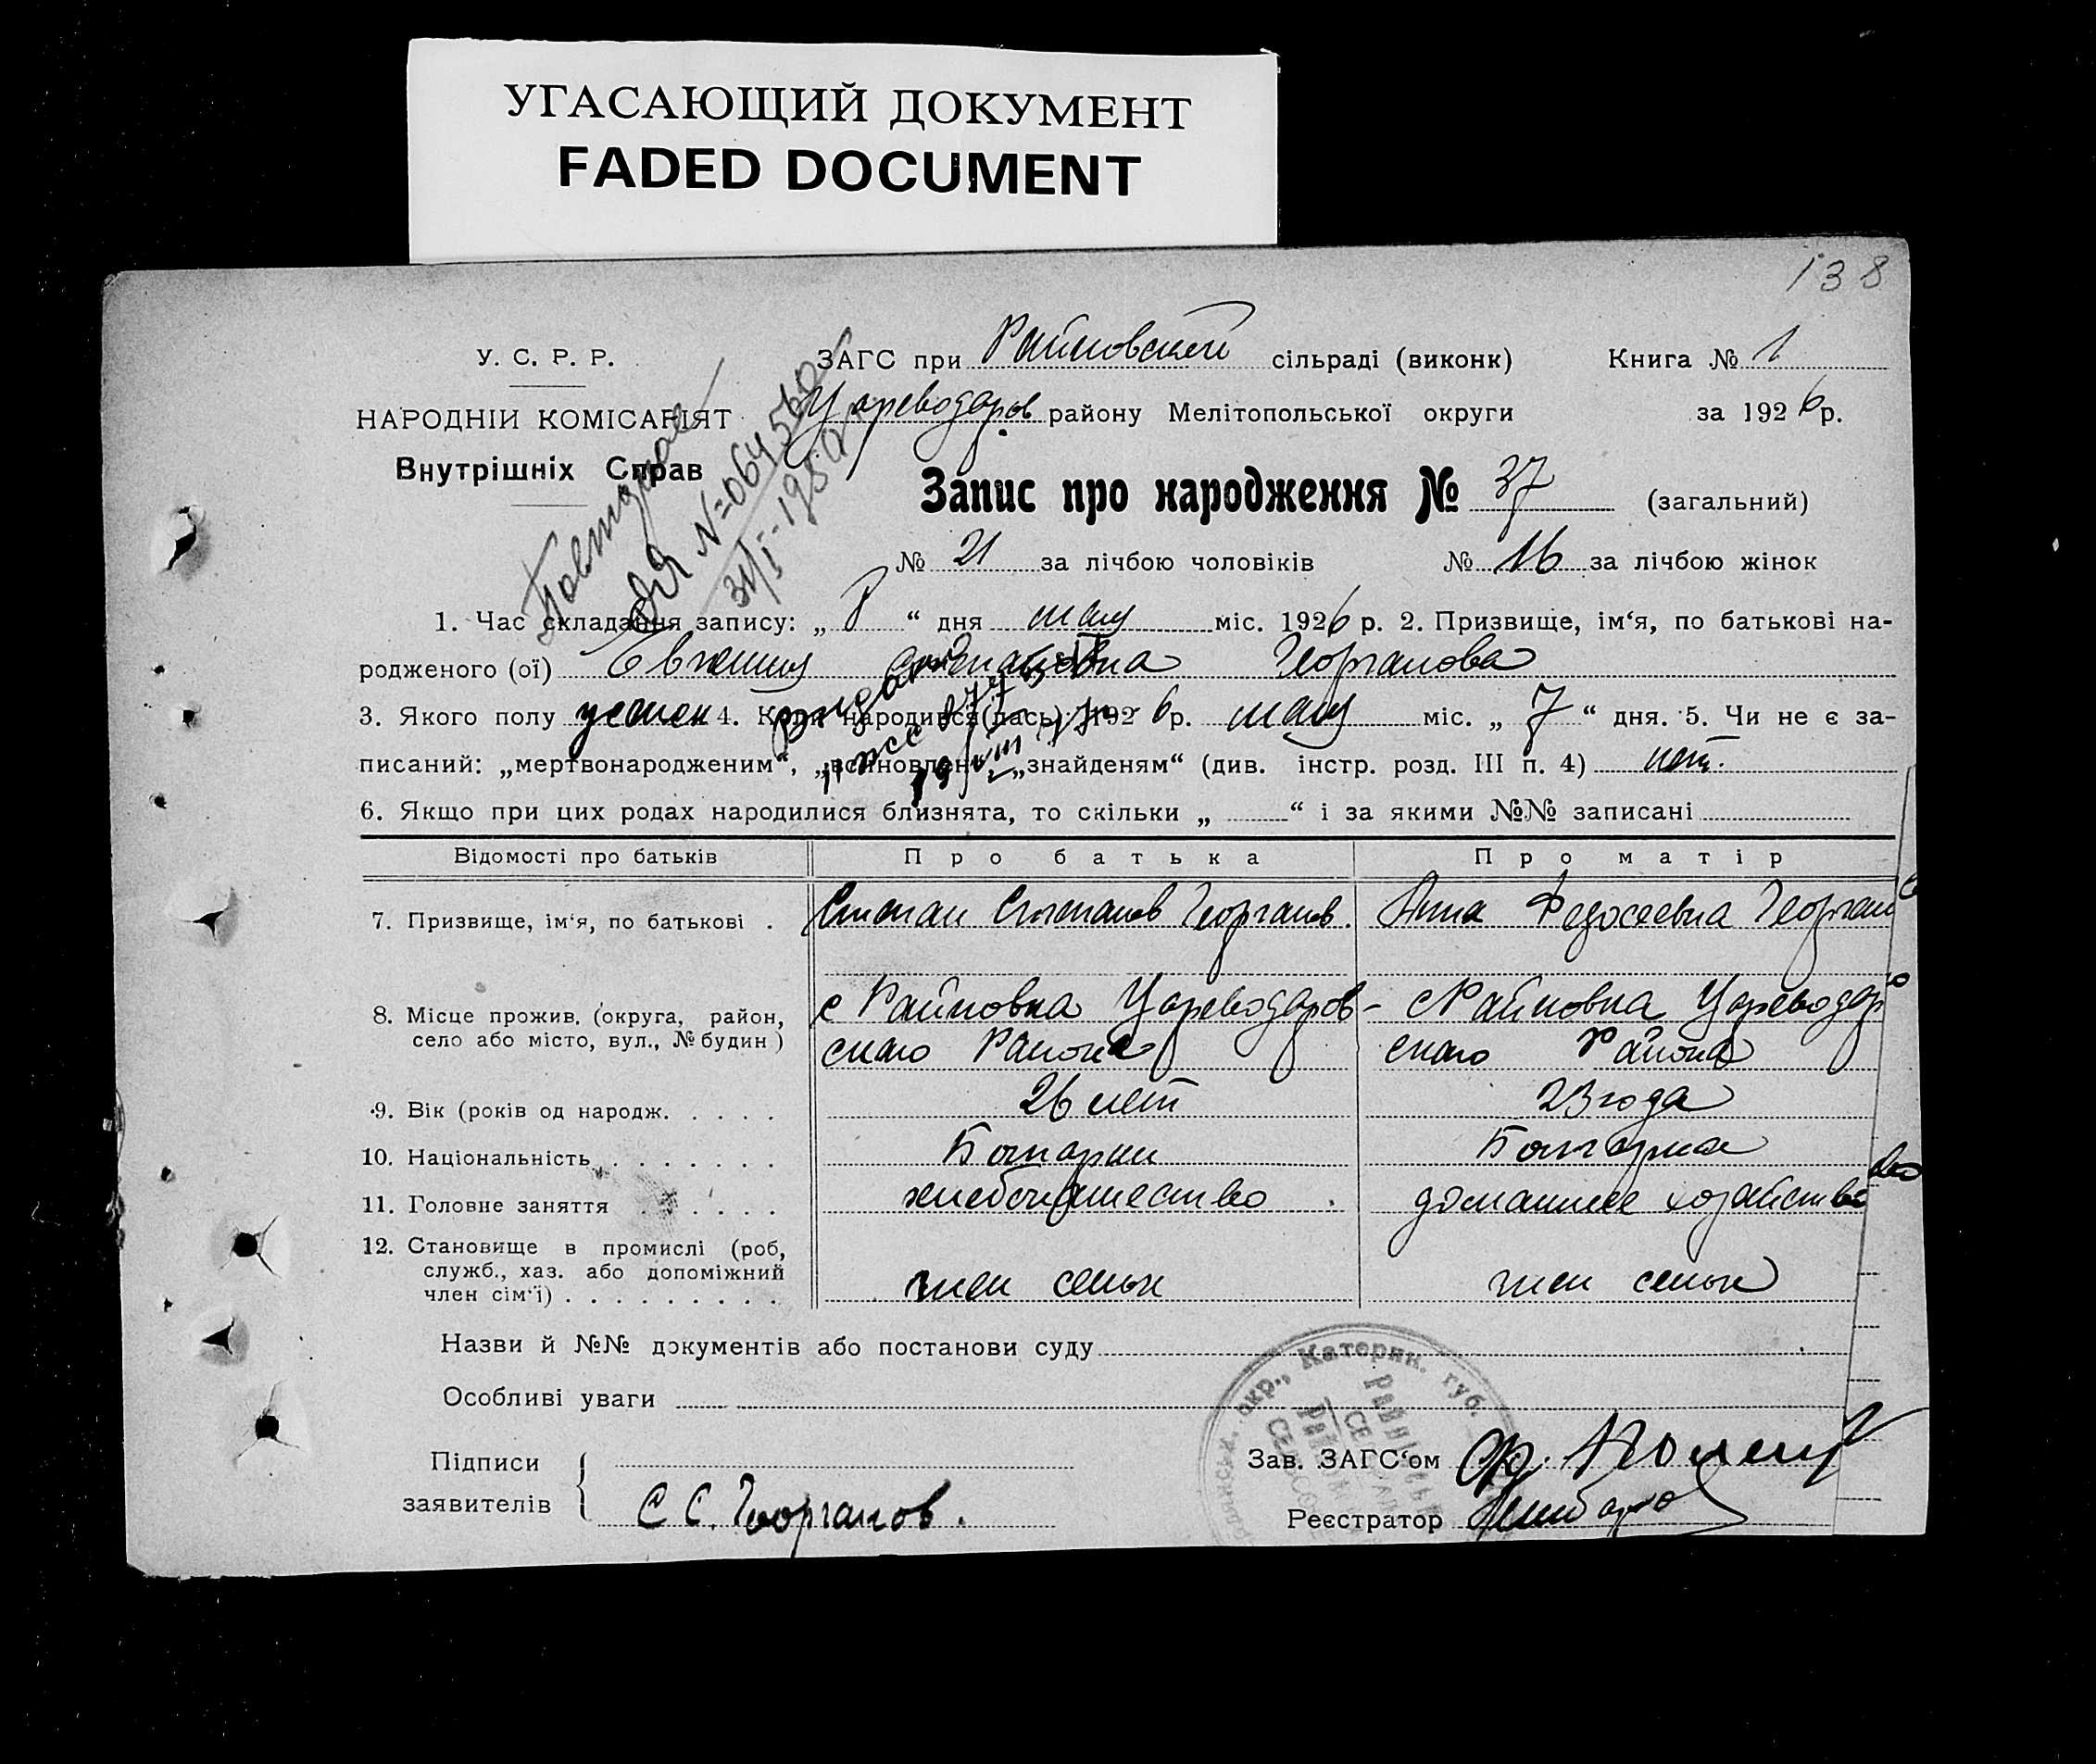 УГАСАЮЩИЙ ДОКУМЕНТ
FADED DOCUMENT
138
У. С. Р. Р.
НАРОДНІЙ КОМІСАРІЯТ
Внутрішніх Справ
ЗАГС при Райновской сільраді (виконк) Книга № 1
Цареводаров. району Мелітопольської округи за 1926 р.
Запис про народження № 37 (загальний)
№ 21 за лічбою чоловіків № 16 за лічбою жінок
Повторное
1. Час складання запису: „ 8 “ дня мая міс. 1926 р. 2. Призвище, ім‘я, по батькові на-
родженого (ої) Евгения Степановна Георганова
3. Якого полу женск 4. Коли народився(лась) 1926 р. мая міс. „ 7 “ дня. 5. Чи не є за-
писаний: „мертвонародженим“, „всиновлен „знайденям“ (див. інстр. розд. III п. 4) нет.
6. Якщо при цих родах народилися близнята, то скільки „ “ і за якими №№ записані
Відомості про батьків Про батька Про матір
7. Призвище, ім‘я, по батькові . Степан Степанов Георганов. Анна Федосеевна Георган
8. Місце прожив. (округа, район, с Райновка Цареводаров- с Райновка Цареводаро
село або місто, вул., № будин) скаго Района скаго Района
9. Вік (років од народж. . . . . 26 лет 23 года
10. Національність . . . . . . . Болгарин Болгарка
11. Головне заняття . . . . . хлебопашество . домашнее хозяйство
12. Становище в промислі (роб,
служб., хаз. або допоміжний
член сім‘ї) . . . . . . . . . член семьи член семьи
Назви й №№ документів або постанови суду
Особливі уваги
окр., Катерин. губ.
Підписи
заявителів С С. Георганов.
Зав. ЗАГС‘ом
Реєстратор